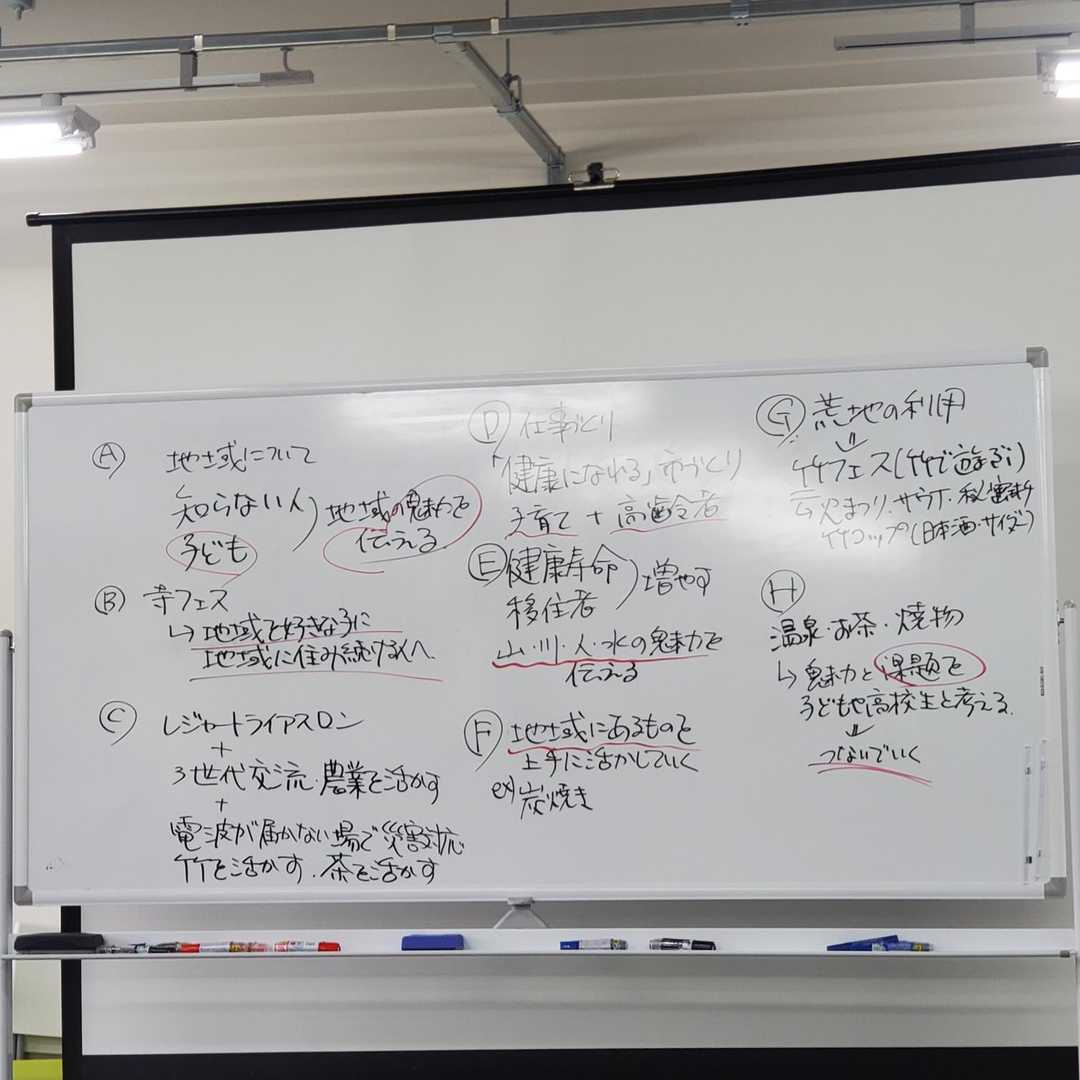 Ⓐ 地域について
知らない人
子ども
地域の魅力を
伝える
Ⓑ 寺フェス
↳ 地域を好きな子に
地域に住み続ける人へ
Ⓒ レジャートライアスロン
+
3世代交流・農業を活かす
+
電波が届かない場で災害対応
竹を活かす・茶を活かす
Ⓓ 仕事づくり
「健康になれる」市づくり
子育て + 高齢者
Ⓔ 健康寿命
移住者
増やす
山・川・人・水の魅力を
伝える
Ⓕ 地域にあるものを
上手に活かしていく
ex) 炭焼き
Ⓖ 荒地の利用
⇓
竹フェス(竹で遊ぶ)
まつり・サウナ・秘密
竹コップ(日本酒・サイダー)
Ⓗ
温泉・お茶・焼物
↳ 魅力と課題を
子どもや高校生と考える
⇓
つないでいく